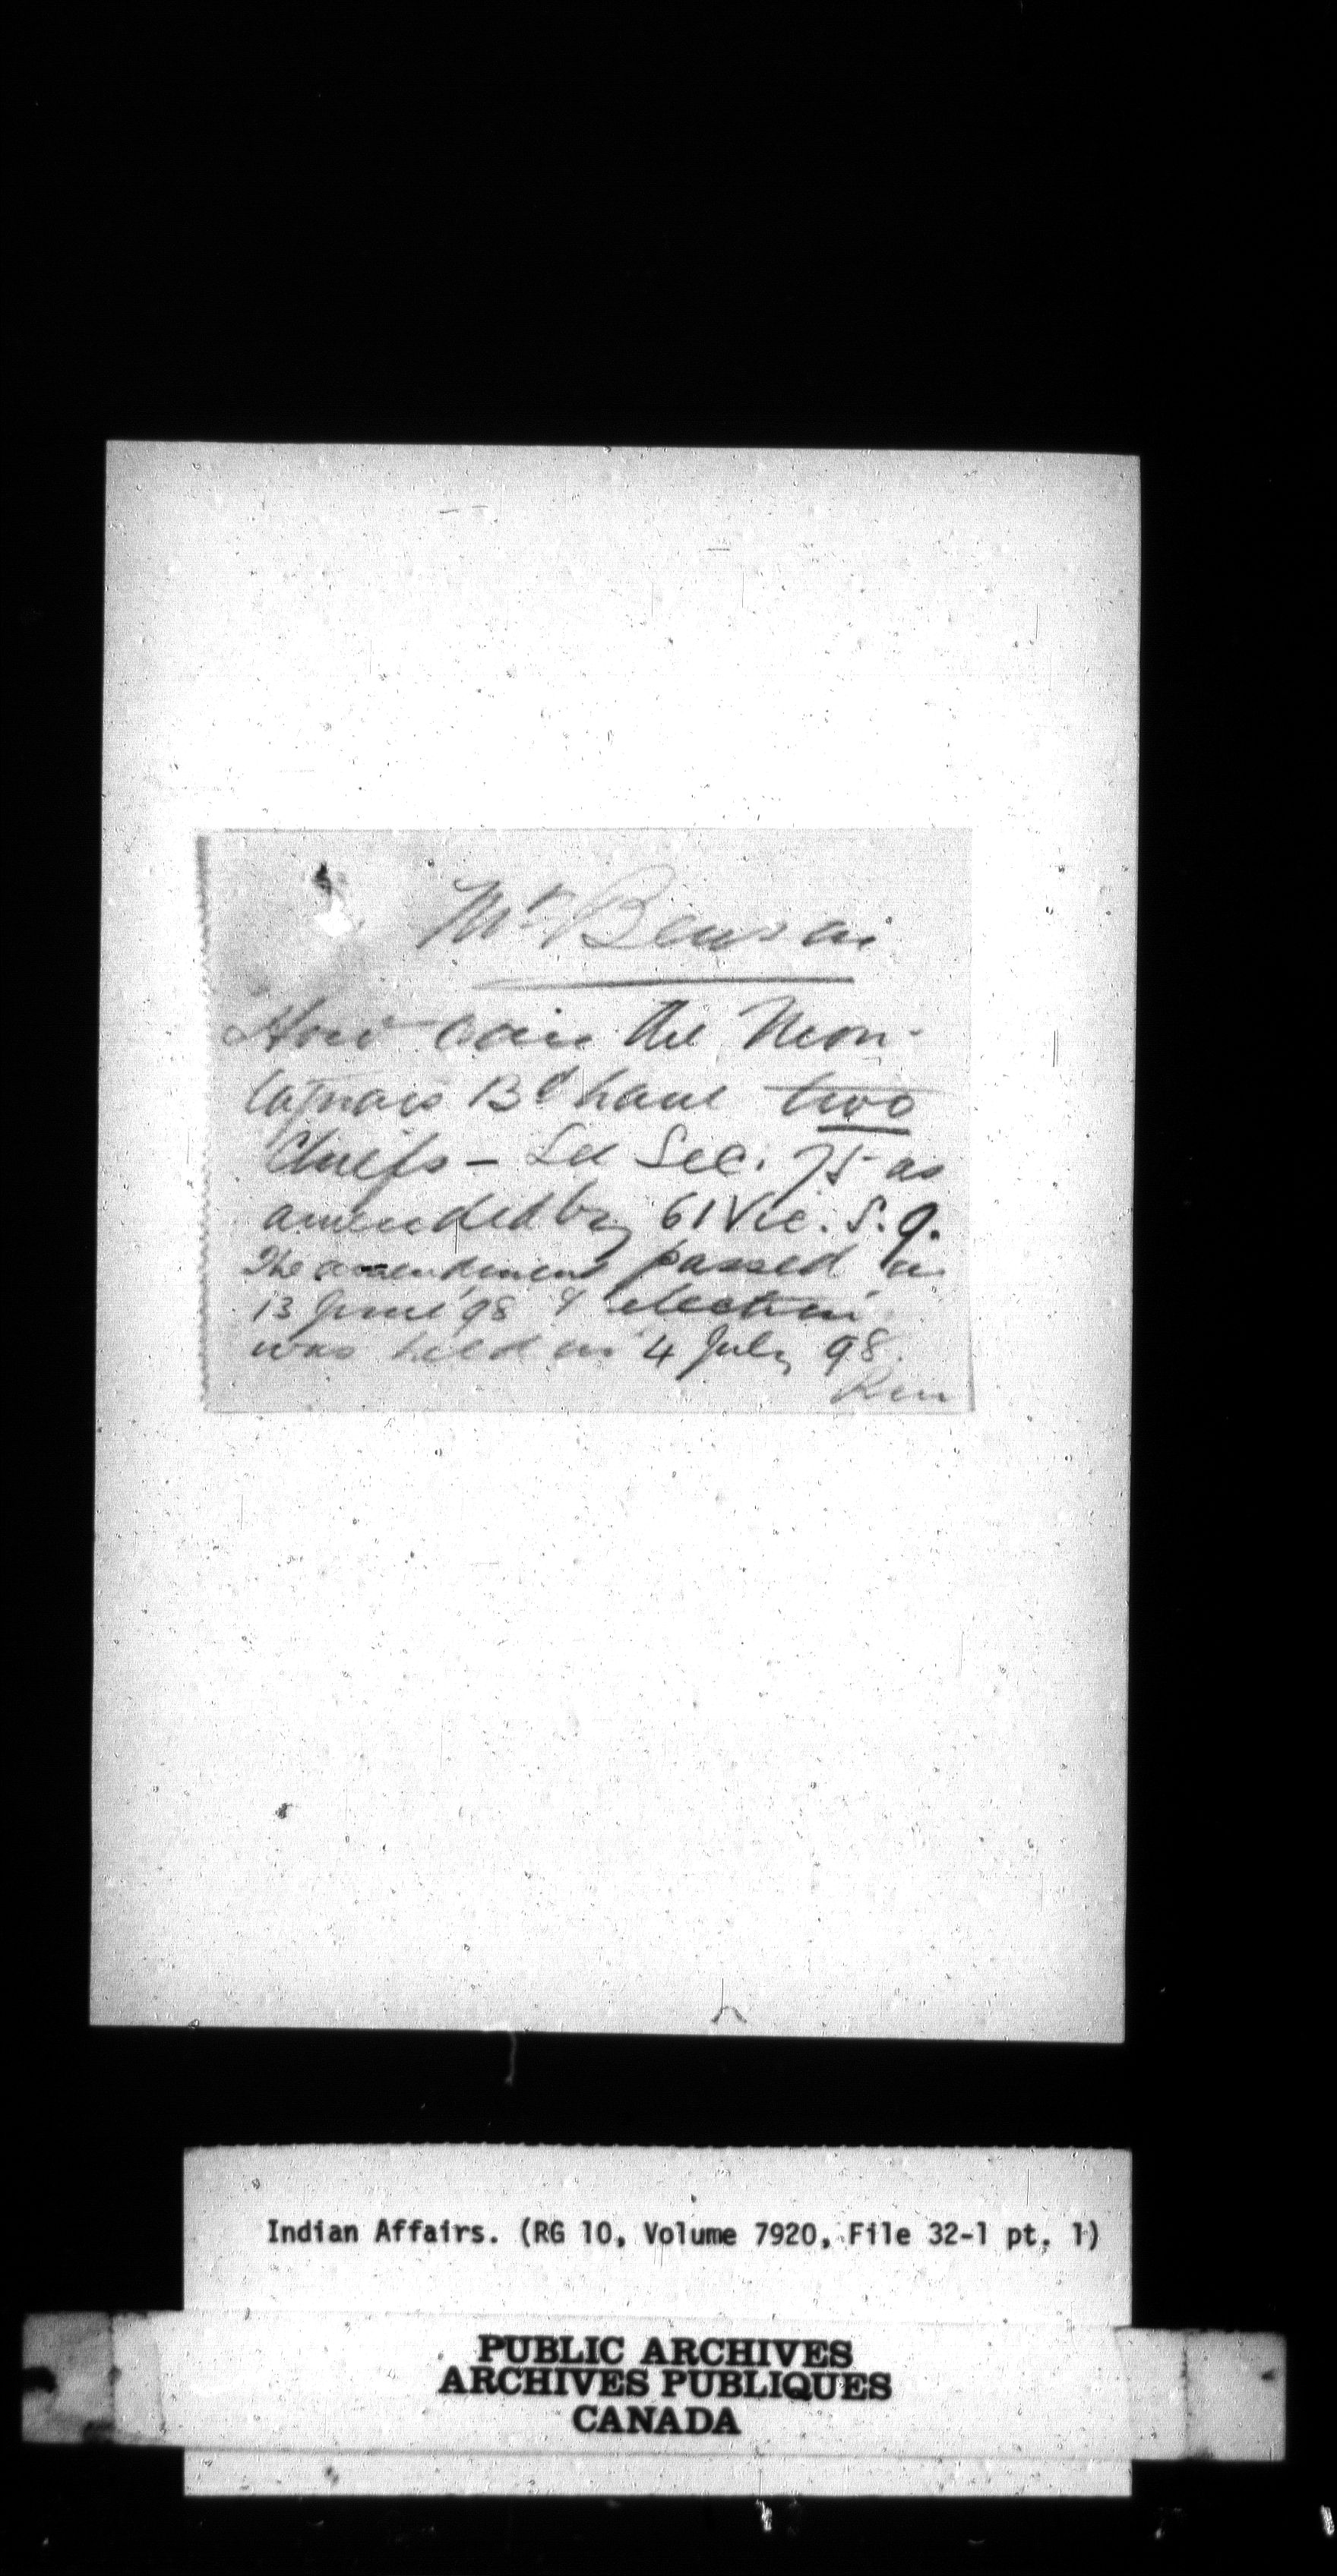 Mr Benson
How can the Mon-
tagnais Bd have two
Chiefs - See Sec. 75 as
amended by 61 Vic. S. 9.
The amendment passed on
13 June '98 & election
was held on 4 July 98.
Indian Affairs. (RG 10, Volume 7920, File 32-1 pt. 1)
PUBLIC ARCHIVES
ARCHIVES PUBLIQUES
CANADA